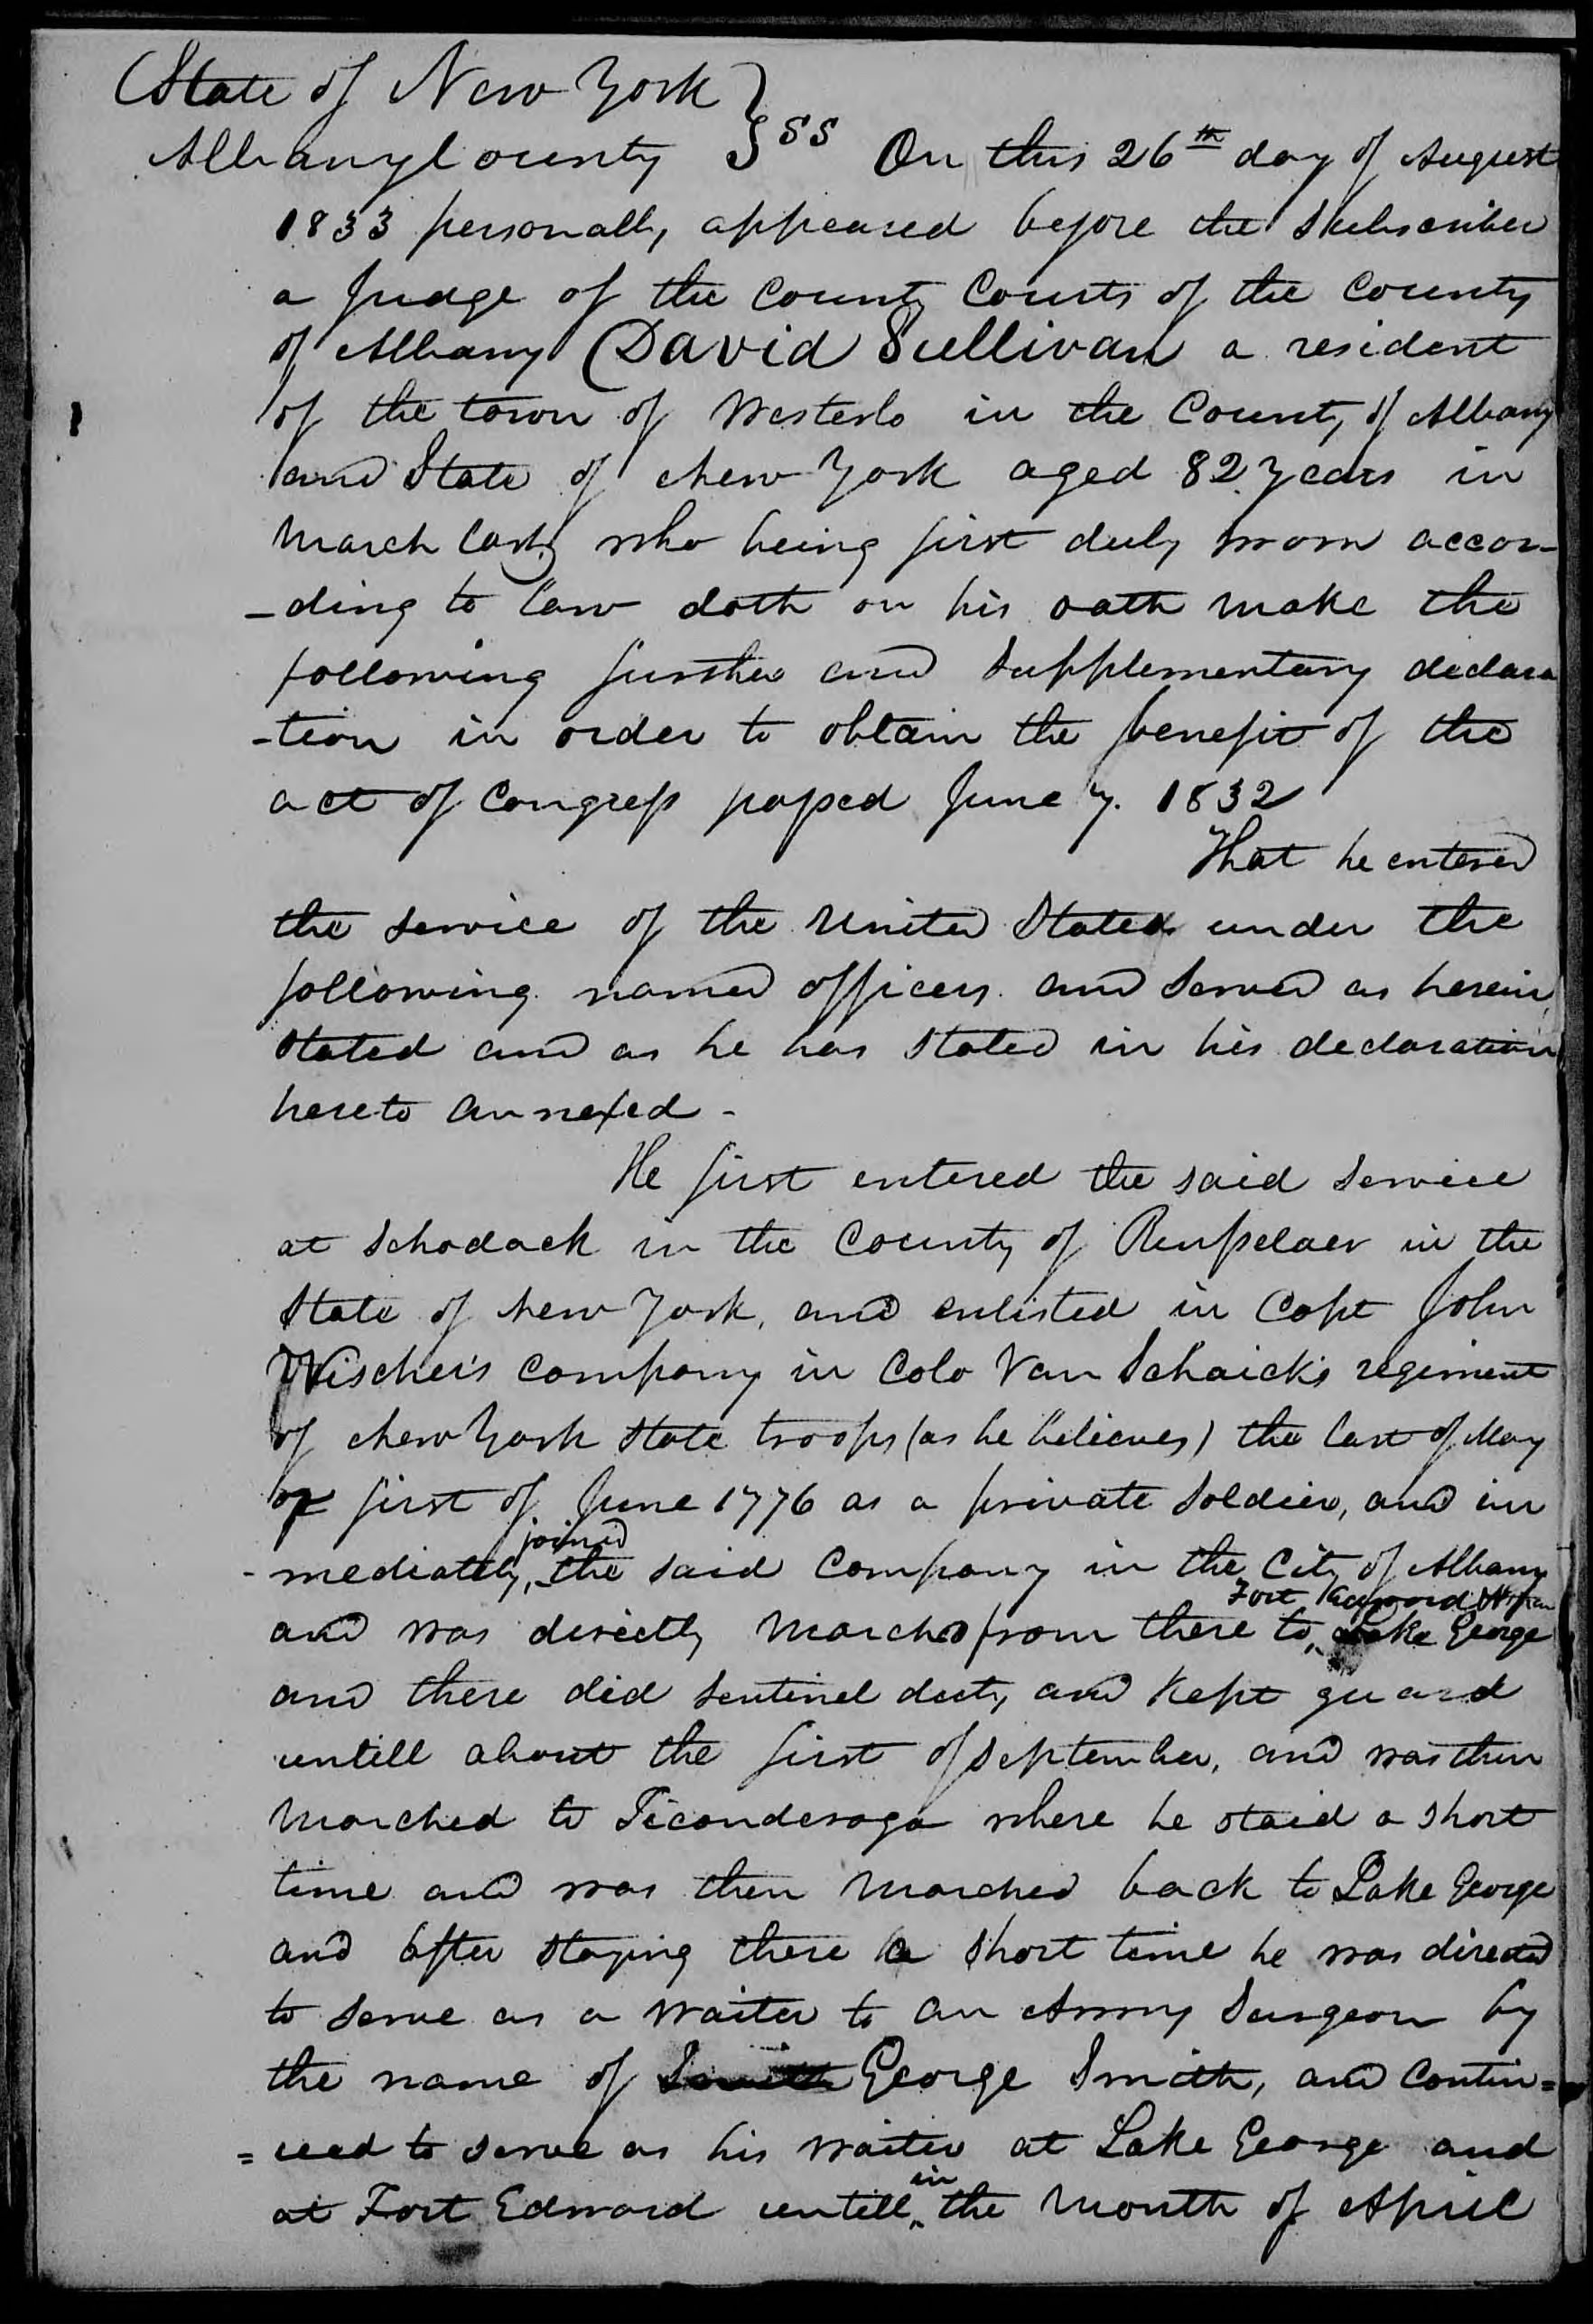 State of New York }
Albany County } SS On this 26th day of August
1833 personally appeared before the Subscriber
a Judge of the County Courts of the County
of Albany David Sullivan a resident
of the town of Westerlo in the County of Albany
and State of New York aged 82 years in
March last, who being first duly sworn accor-
-ding to law doth on his oath make the
following further and Supplementary declara
-tion in order to obtain the benefit of the
act of Congress passed June 7. 1832
That he entered
the service of the United States under the
following named officers and served as herein
stated and as he has stated in his declaration
hereto annexed -
He first entered the said service
at Schodack in the County of Rensselaer in the
State of New York, and enlisted in Capt John
Wischer's company in Colo Van Schaick's regiment
of New York State troops (as he believes) the last of May
or first of June 1776 as a private Soldier, and im
-mediately joined the said Company in the City of Albany
and was directly marched from there to Fort Edward & Lake George
and there did sentinel duty and kept guard
untill about the first of September, and was then
marched to Ticonderoga where he staid a short
time and was then marched back to Lake George
and after staying there a short time he was directed
to serve as a waiter to an Army Surgeon by
the name of Smith George Smith, and contin=
=ued to serve as his waiter at Lake George and
at Fort Edward untill in the month of April